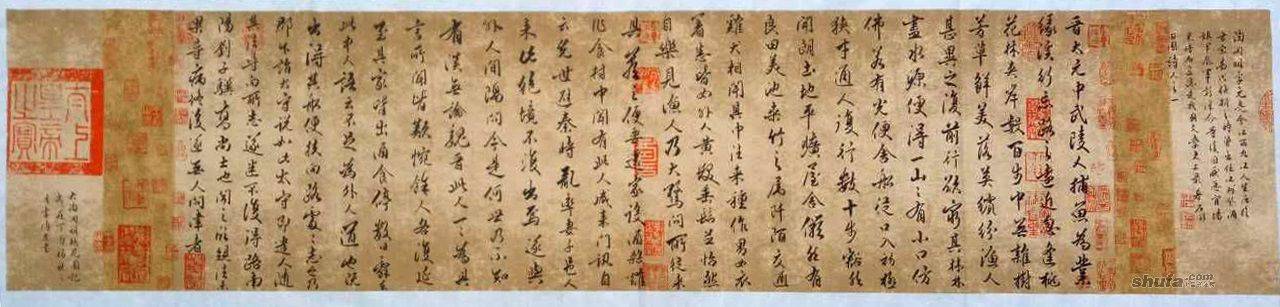 陶淵明字元亮
晉太元中武陵人捕魚為業
緣溪行忘路之遠近忽逢桃
花林夾岸數百步中無雜樹
芳草鮮美落英繽紛漁人
甚異之復前行欲窮其林林
盡水源便得一山山有小口仿
佛若有光便舍船從口入初極
狹才通人復行數十步豁然
開朗土地平曠屋舍儼然有
良田美池桑竹之屬阡陌交通
雞犬相聞其中往來種作男女衣
著悉如外人黃髮垂髫並怡然
自樂見魚人乃大驚問所從來
具答之便要還家設酒殺雞
作食村中聞有此人咸來問訊自
云先世避秦時亂率妻子邑人
來此絕境不復出焉遂與
外人間隔問今是何世乃不知
有漢無論魏晉此人一一為具
言所聞皆歎惋餘人各復延
至其家皆出酒食停數日辭去
此中人語云不足為外人道也既
出得其船便扶向路處處志之及
郡下詣太守說如此太守即遣人隨
其往尋向所志遂迷不復得路南
陽劉子驥高尚士也聞之欣然規往未
果尋病終後遂無人問津者
太上皇帝之寶
shufa.com